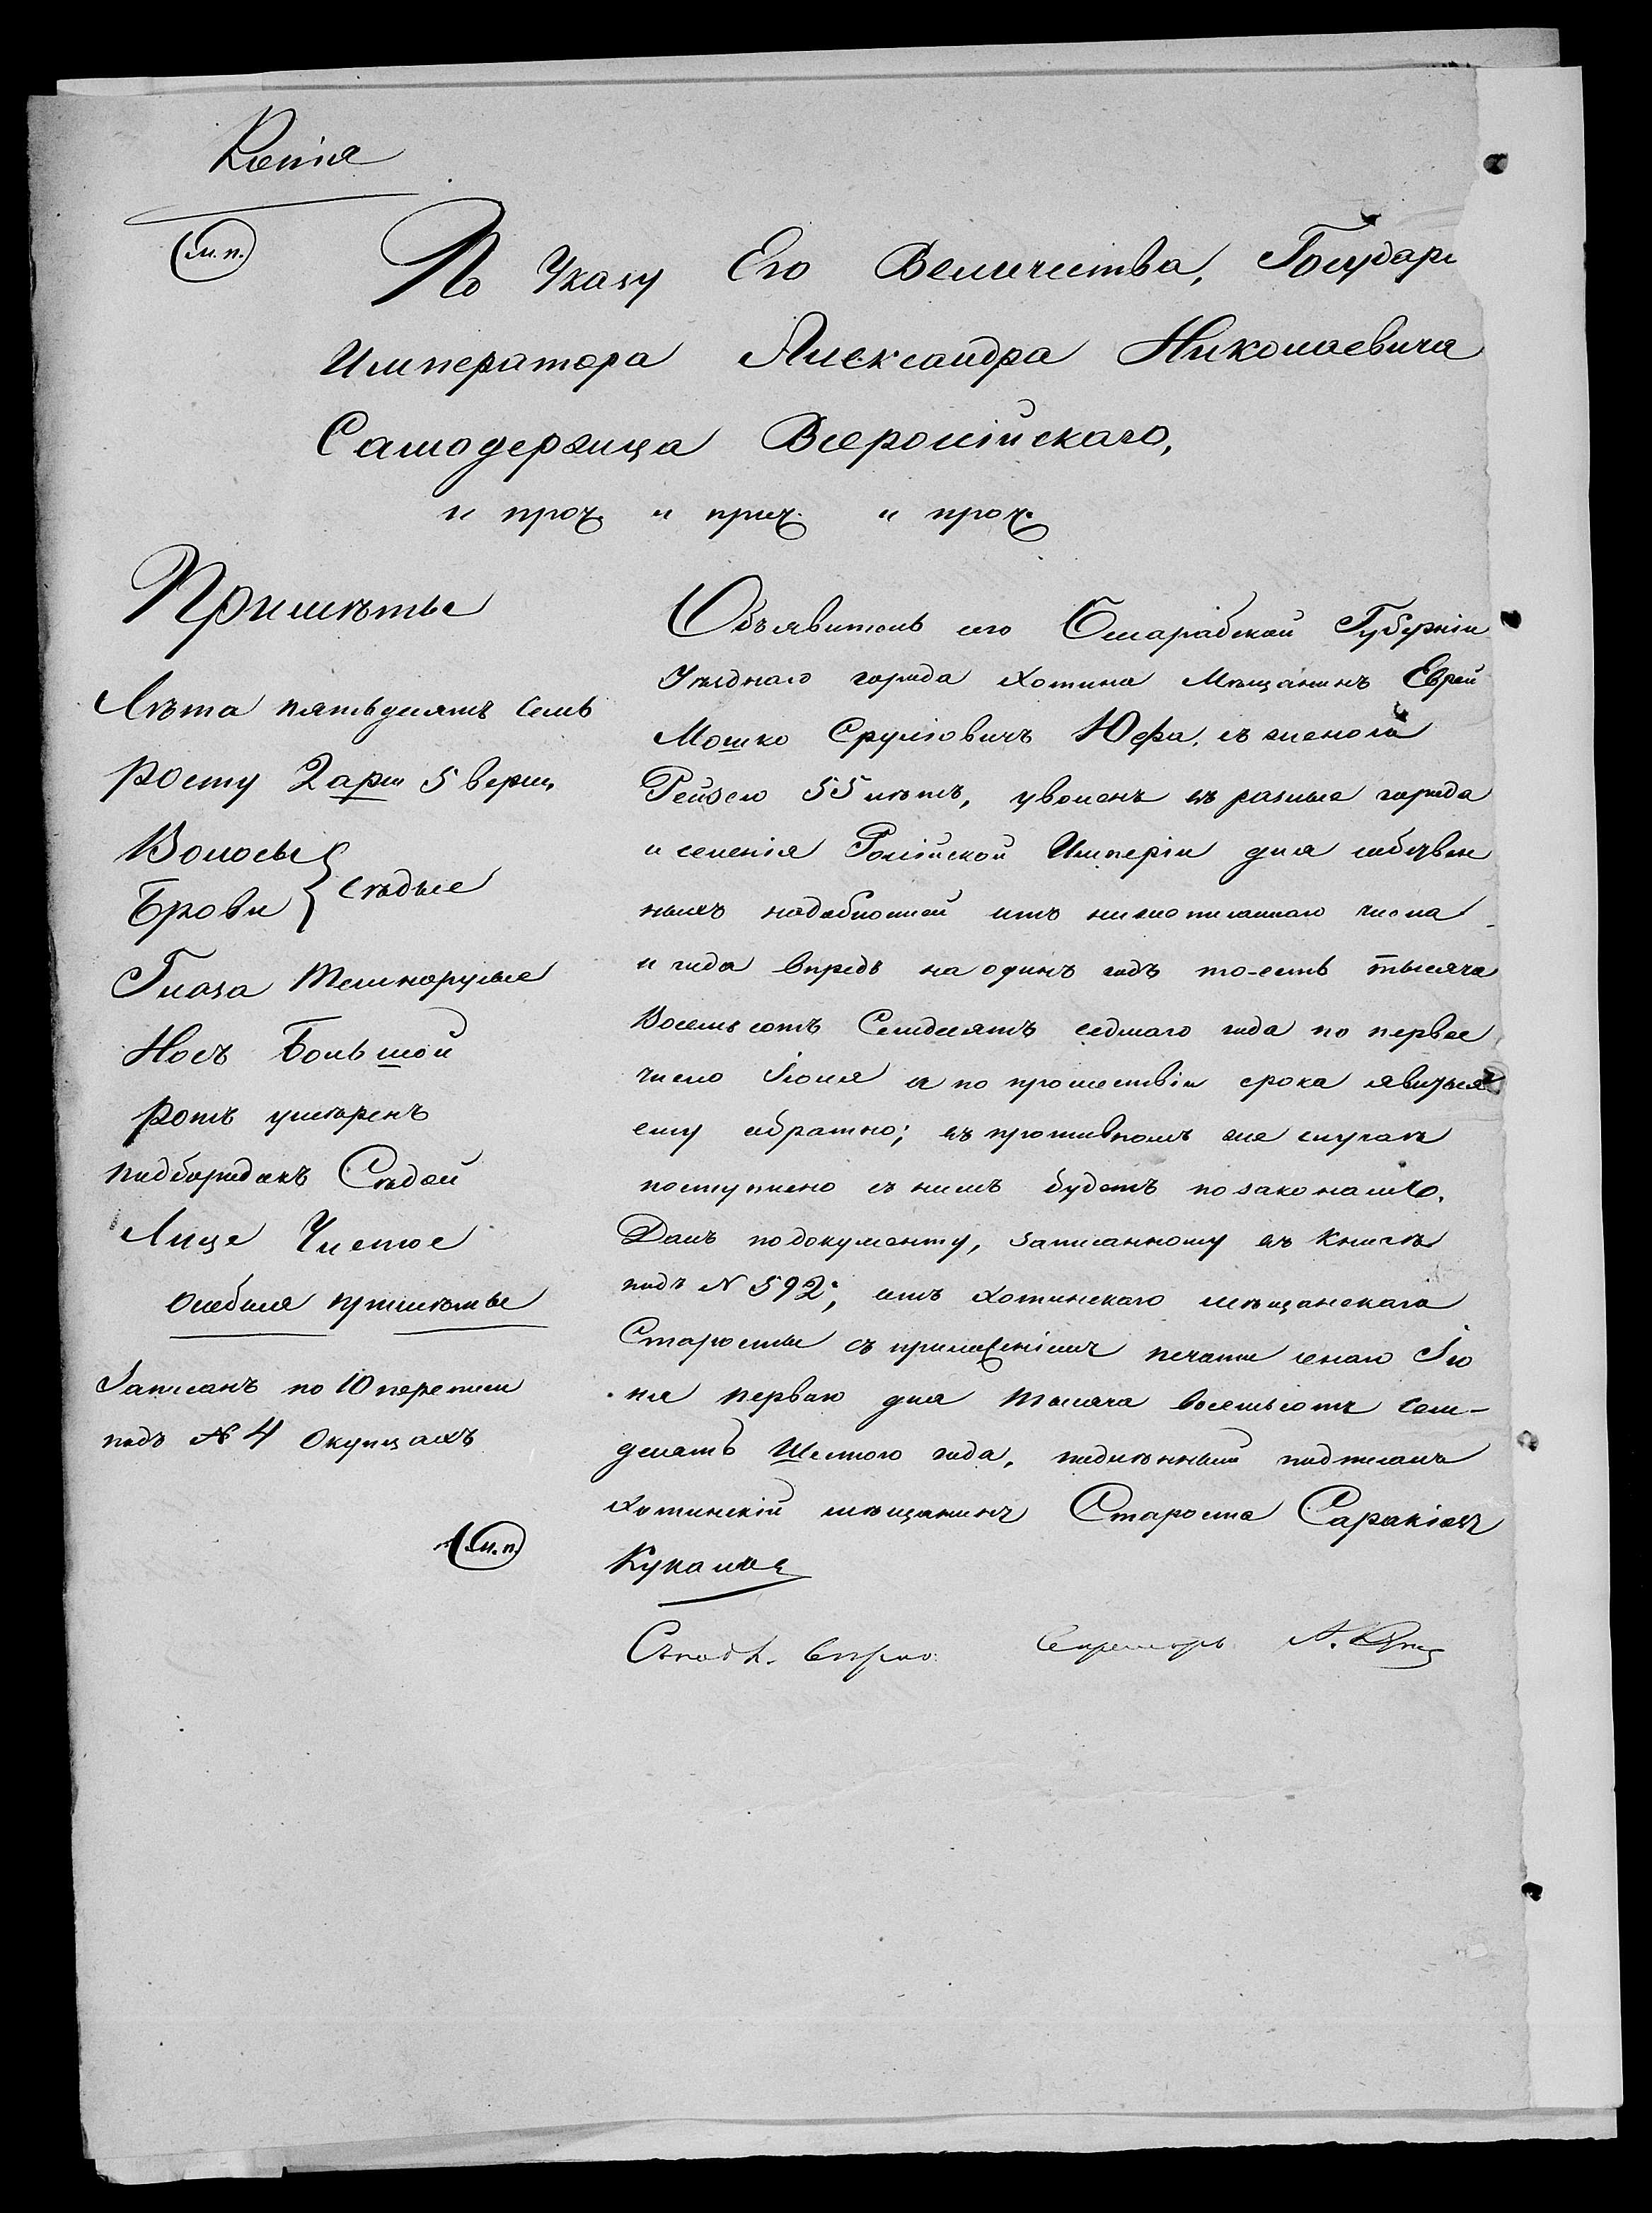 Копія
(М.П.)
По Указу Его Величества, Государя
Императора Александра Николаевича
Самодержца Всеросійскаго,
и проч. и проч. и проч.
Примѣты
Лѣта пятьдесятъ семь
Росту 2 арш 5 верш,
Волосы
Брови } Сѣдые
Глаза Темнорусые
Носъ Большой
Ротъ умѣренъ
Подбородокъ Сѣдой
Лице Чистое
Особыя примѣты
Записанъ по 10 переписи
подъ № 4 Окупцахъ
(М.П.)
Объявитель сего Бесарабской Губерніи
Уѣзднаго города Хотина Мѣщанинъ Еврей
Мошко Срулiовичъ Юфа, съ женою
Рейзею 55 лѣтъ, уволенъ въ разные города
и селенія Росiйской Имперіи для собствен
ныхъ надобностей отъ нижеписаннаго числа
и года впредь на одинъ годъ то-есть тысяча
Восемьсотъ Семдесятъ седмаго года по первое
число Iюня и по прошествіи срока явиться
ему обратно; въ противномъ же случаѣ
поступлено съ нимъ будетъ по законамъ.
Данъ по документу, записанному въ книгѣ
подъ № 592; отъ Хотинскаго мѣщанскаго
Старосты съ приложеніемъ печати онаго Iю
ня перваго дня тысяча восемьсотъ сем-
десятъ Шестого года, подлѣнный подписалъ
Хотинскій мѣщанинъ Староста Саракiанъ
Съ подл. вѣрно: Секретарь А.